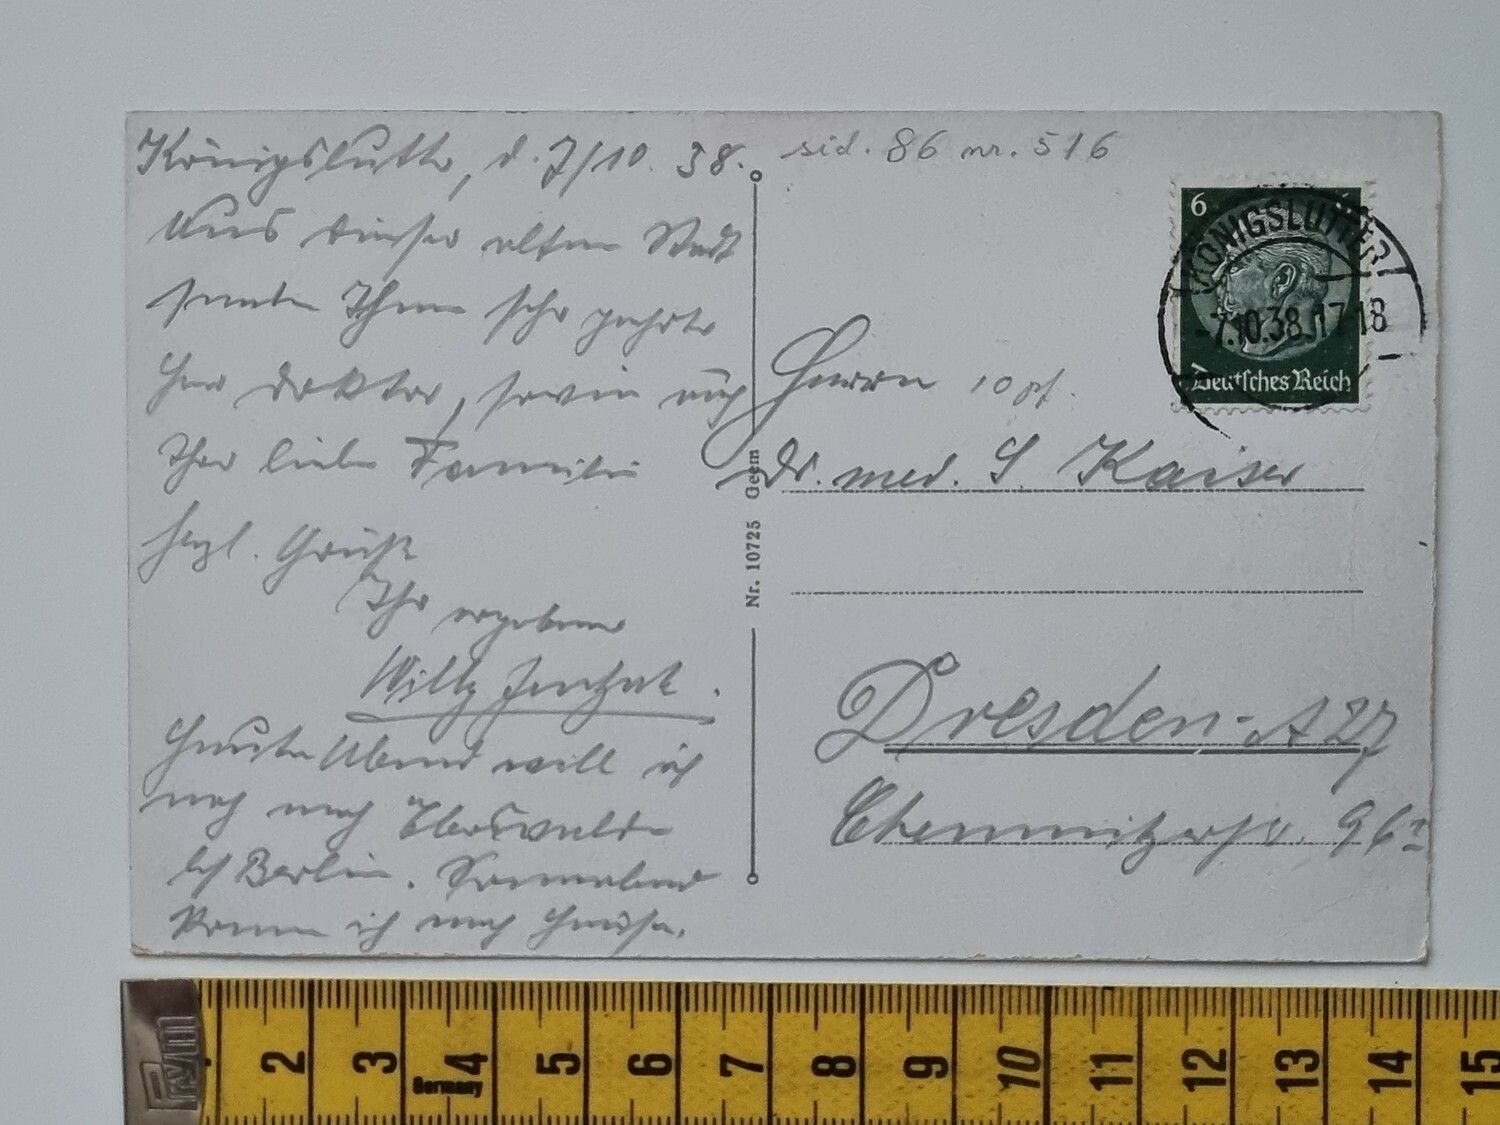 Königslutter, d. 7/10. 38.
Aus dieser alten Stadt
senden Ihnen sehr geehrter
Herr Doktor, sowie auch
Ihrer lieben Familie
herzl. Grüße
Ihr ergebener
Willy
Heute Abend will ich
noch nach Eberswalde
bei Berlin. Sonnabend
komme ich nach Hause.
sid. 86 nr. 516
6
KÖNIGSLUTTER
-7.10.38.17-18
Deutsches Reich
Herrn 10 pf.
Dr. med. S. Kaiser
Dresden-A 27
Chemnitzerstr. 96
Nr. 10725 Geem
Prym
2 3 4 5 6 7 8 9 10 11 12 13 14 15
Germany